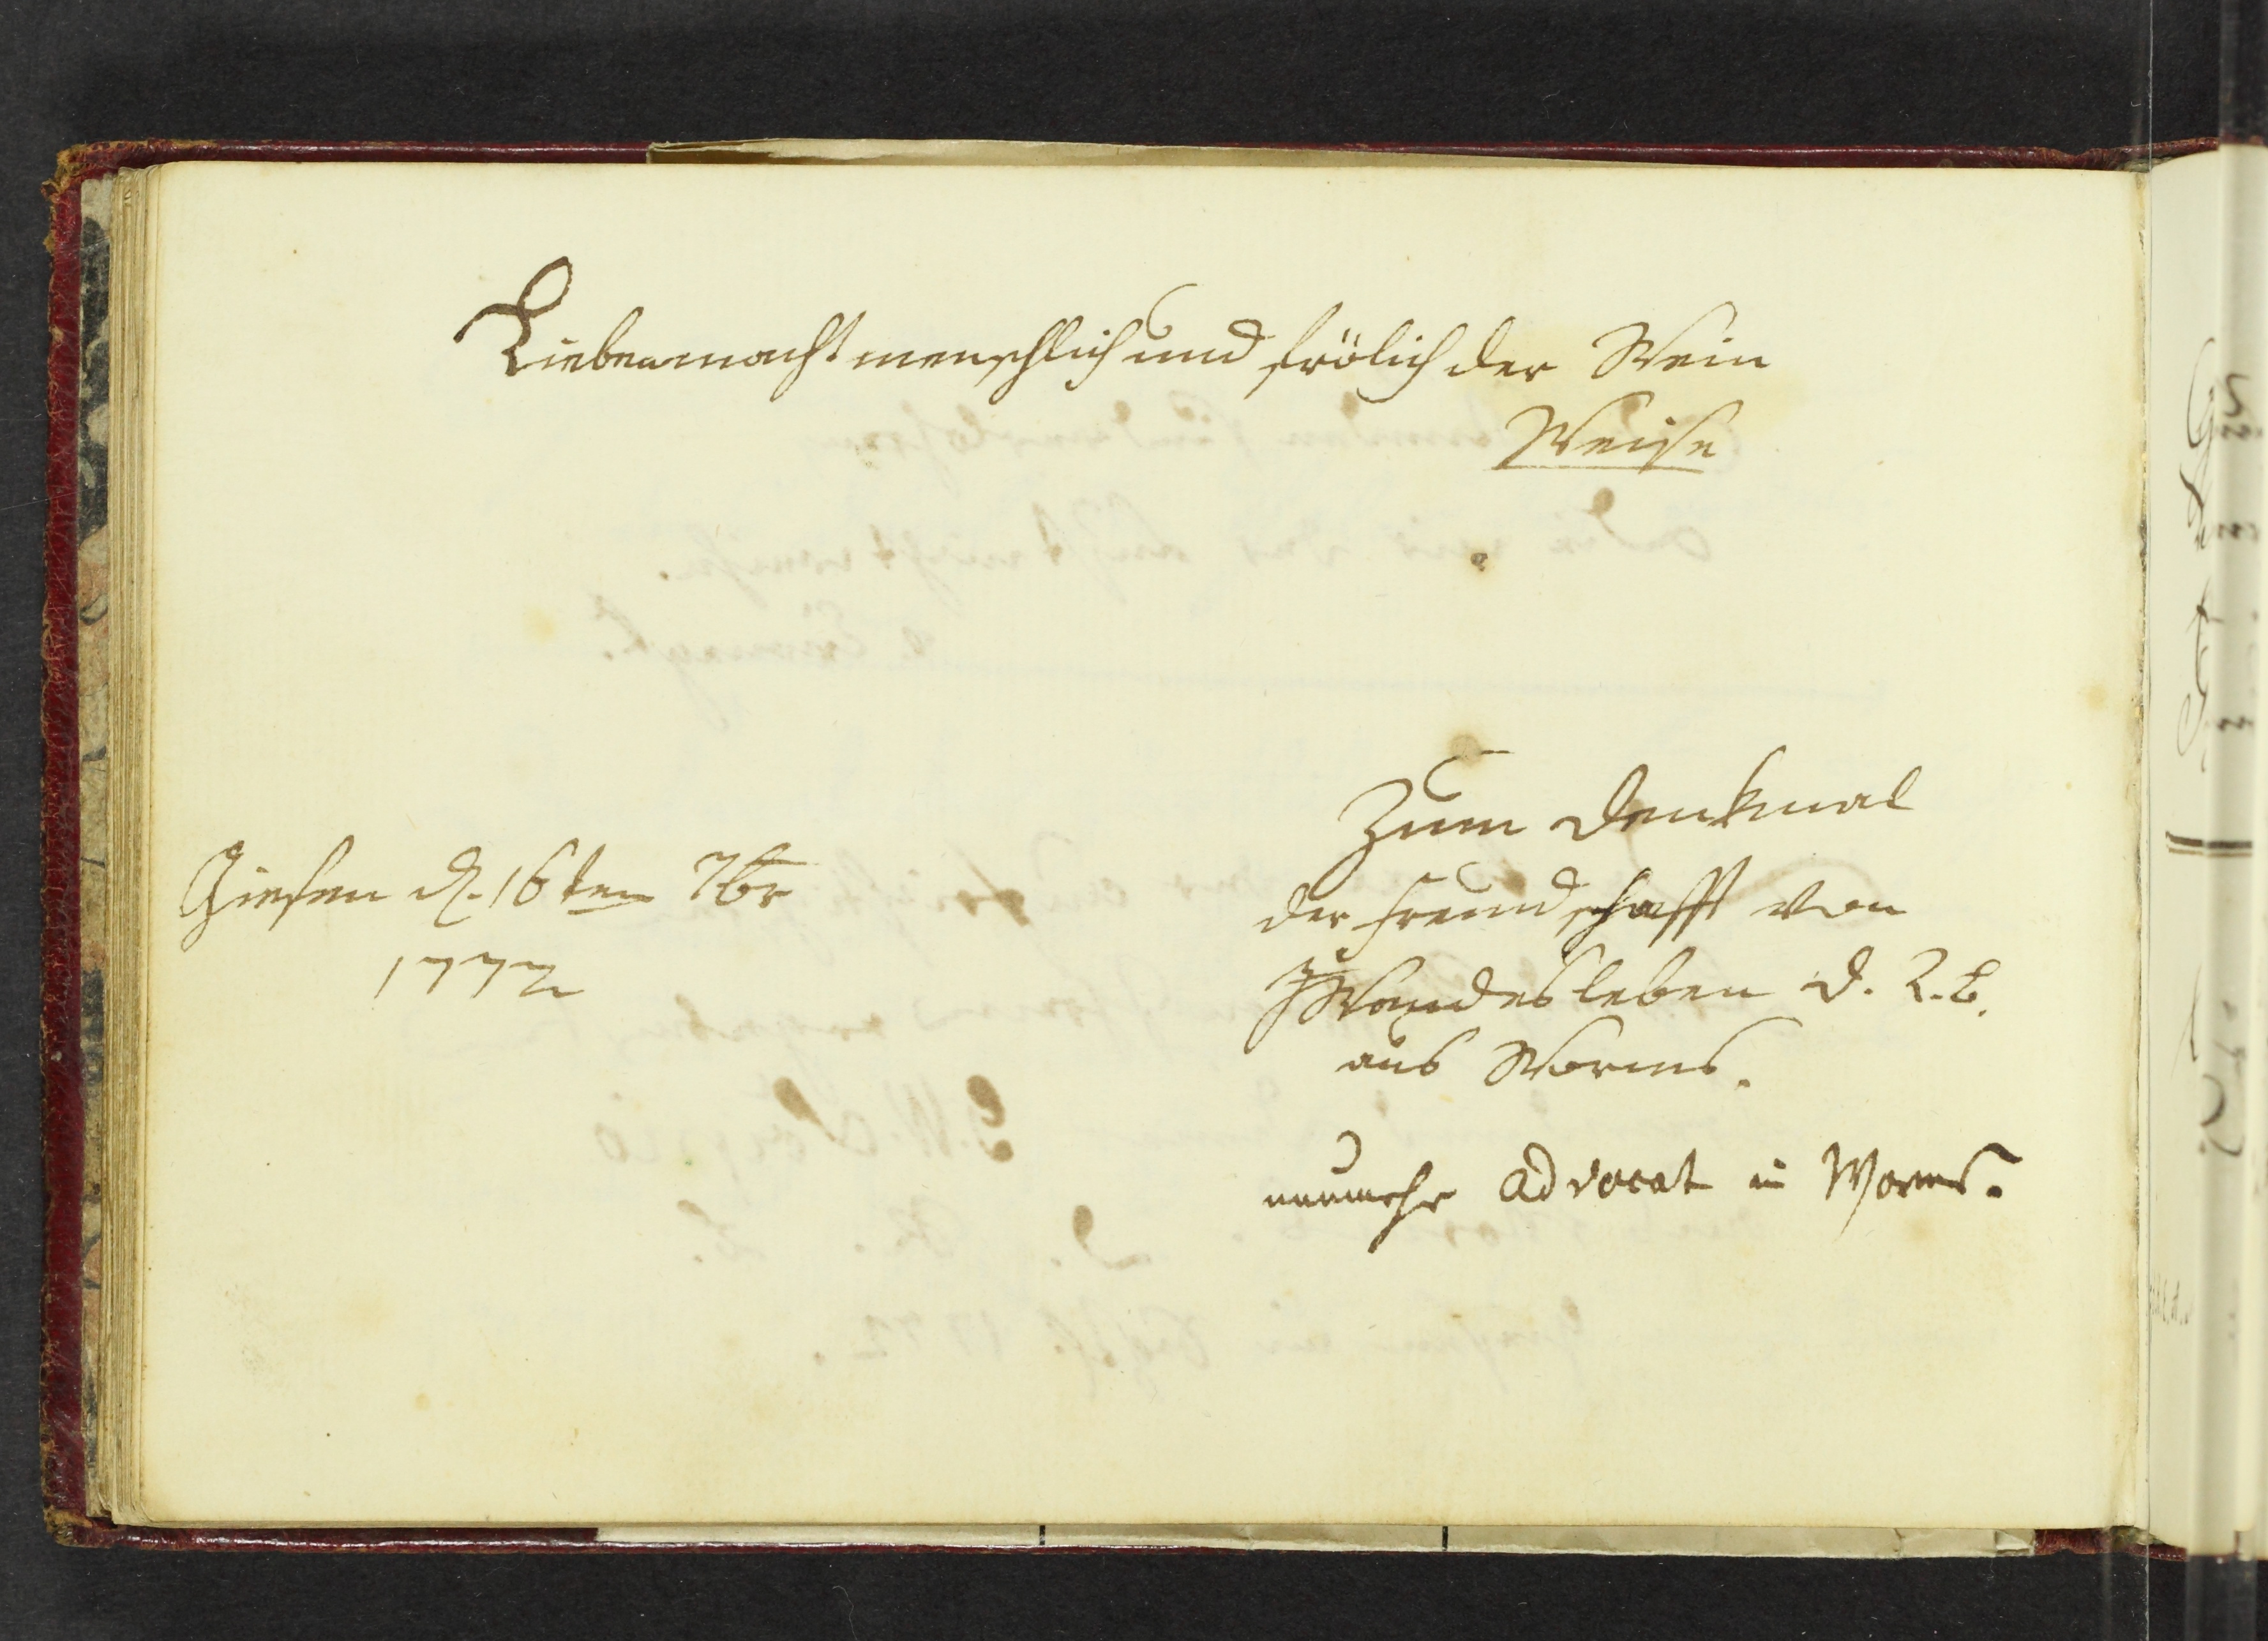 Liebe macht menschlich und frölich der Wein
Weise
Giesen d. 16ten 7br
1772
Zum Denkmal
der Freundschafft von
Wandesleben d. R. B.
aus Worms.
nunmehr Advocat in Worms.